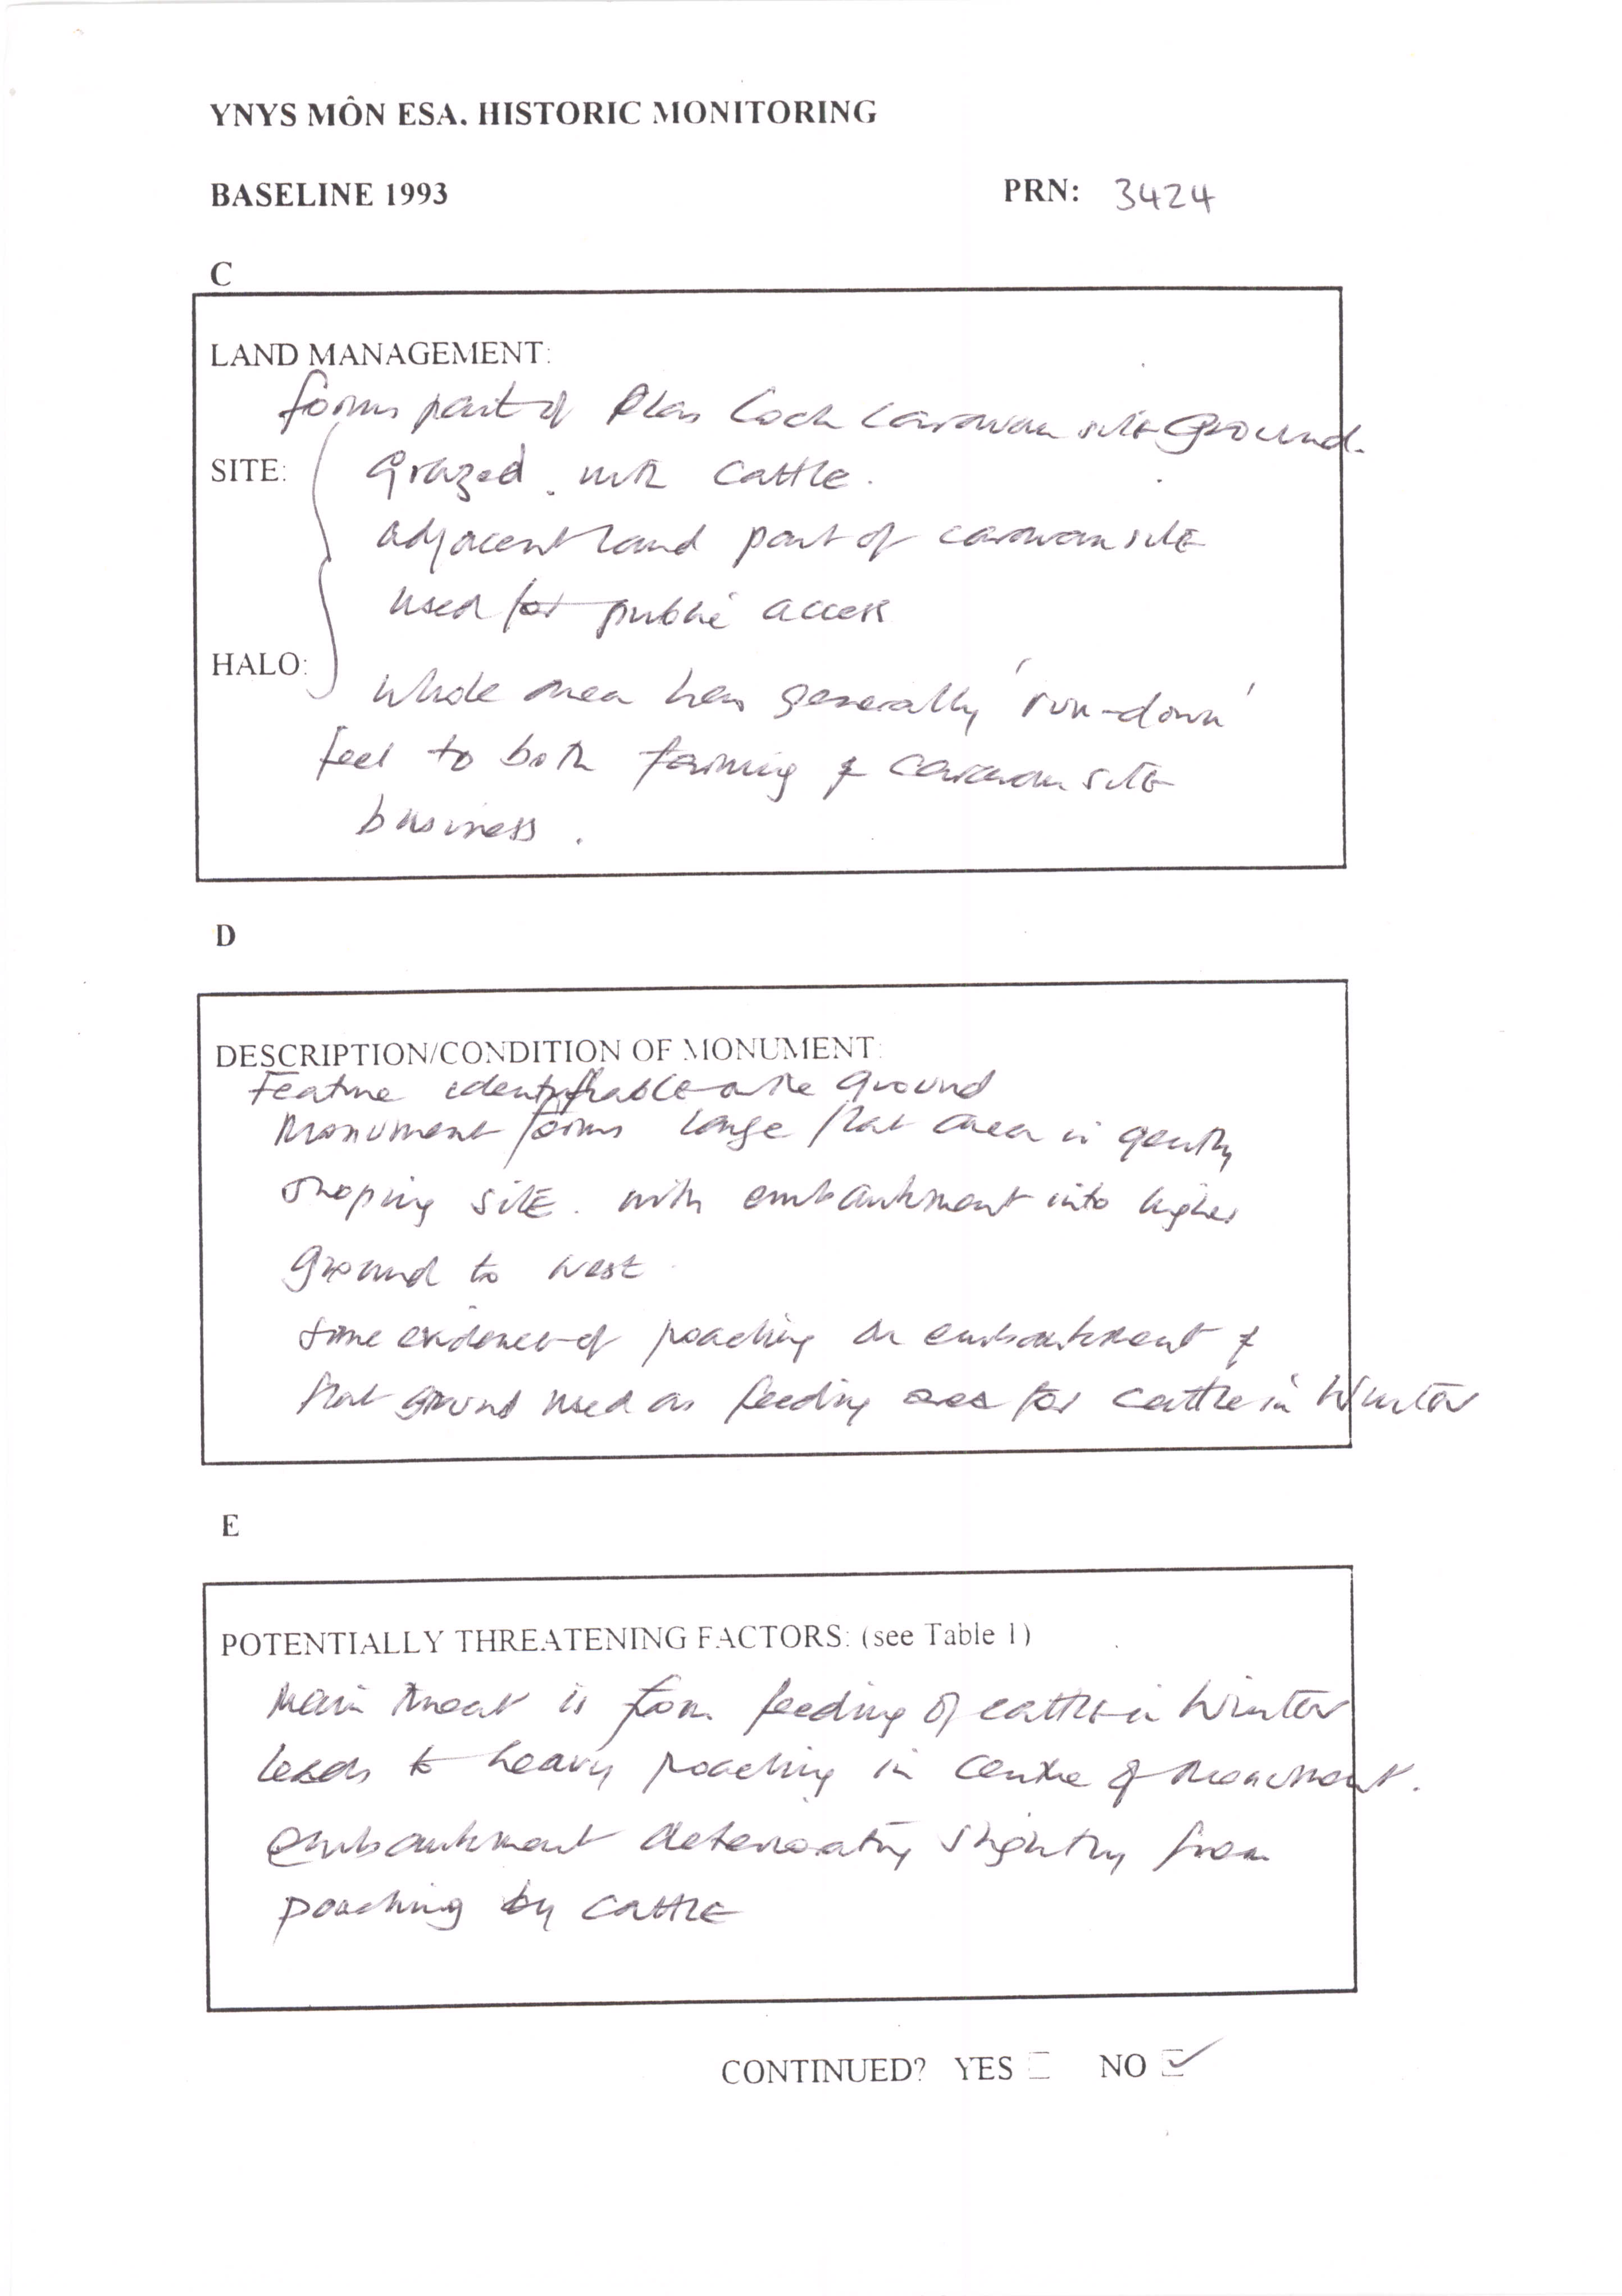 YNYS MÔN ESA. HISTORIC MONITORING
BASELINE 1993 PRN: 3424
C
LAND MANAGEMENT:
forms part of Plas Coch Caravan site ground.
SITE: Grazed with cattle.
adjacent land part of caravan site
used for public access
HALO: Whole area has generally 'run-down'
feel to both farming & caravan site
business.
D
DESCRIPTION/CONDITION OF MONUMENT:
Feature identifiable on the ground
Monument forms large flat area in gently
sloping site. with embankment into higher
ground to west
Some evidence of poaching on embankment &
flat ground used as feeding area for cattle in Winter
E
POTENTIALLY THREATENING FACTORS: (see Table 1)
Main threat is from feeding of cattle in Winter
leads to heavy poaching in centre of monument.
embankment deteriorating slightly from
poaching by cattle
CONTINUED? YES NO ✓